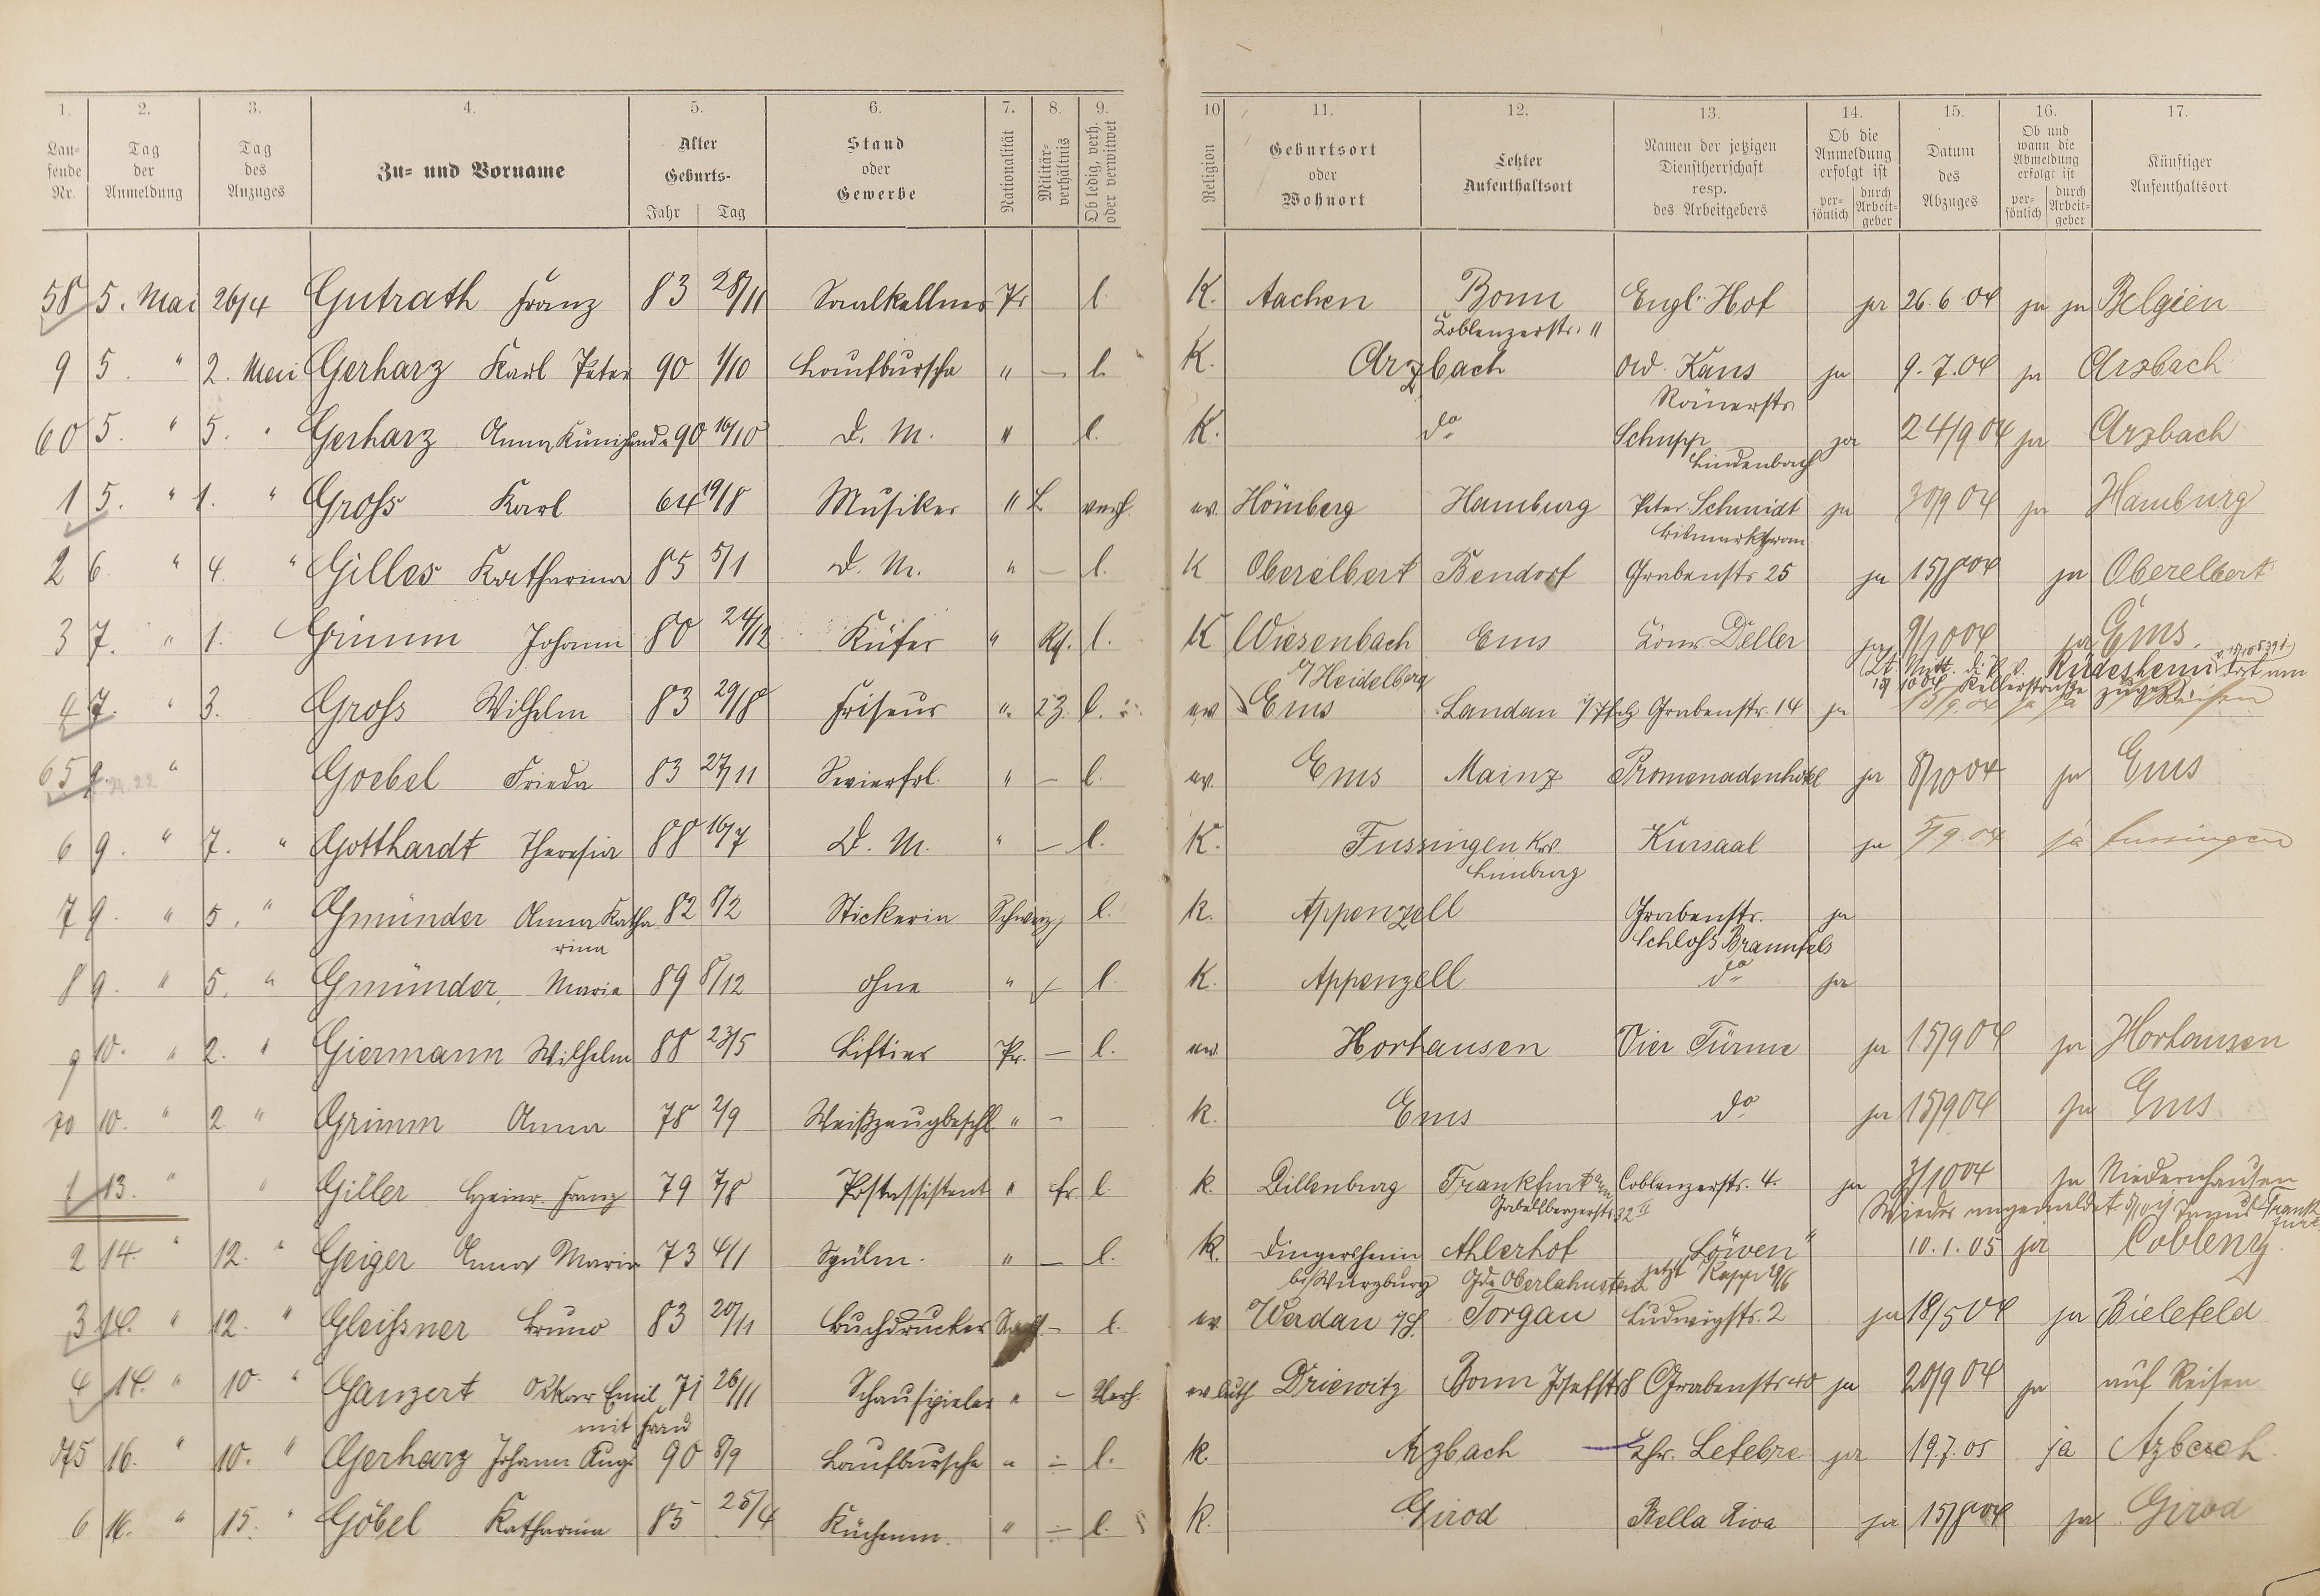 1. 2. 3. 4. 5. 6. 7. 8. 9. 10 11. 12. 13. 14. 15. 16. 17.
Lau-fende Nr. Tag der Anmeldung Tag des Anzuges Zu- und Vorname Alter Geburts- Jahr Tag Stand oder Gewerbe Nationalität Militär-verhältnis Ob ledig, verh. oder verwitwet Religion Geburtsort oder Wohnort Letzter Aufenthaltsort Namen der jetzigen Dienstherrschaft resp. des Arbeitgebers Ob die Anmeldung erfolgt ist per-sönlich durch Arbeit-geber Datum des Abzuges Ob und wann die Abmeldung erfolgt ist per-sönlich durch Arbeit-geber Künftiger Aufenthaltsort
58 5. Mai 26/4 Gutrath Franz 83 28/11 Saalkellner Pr l. K. Aachen Bonn Engl. Hof ja 26.6 04 ja ja Belgien
Coblenzerstr. 11
9 5. " 2. Mai Gerharz Karl Peter 90 1/10 Laufbursche " — l. K. Arzbach Kaus ja 9.7.04 ja Arzbach
Römerstr
60 5. " 5. " Gerharz Anna Kunigunde 90 16/10 D. M. " l. K. do Schupp ja 24/9 04 ja Arzbach
Lindenbach
1 5. " 1. " Groß Karl 64 19/8 Musiker " L verh. ev. Hömberg Hamburg Peter Schmidt ja 30/9 04 ja Hamburg
2 6. " 4. " Gilles Katharina 85 5/1 D. M. " — l. K Oberelbert Bendorf Grabenstr 25 ja 15/8 04 ja Oberelbert
3 7. " 1. Grimm Johann 80 24/12 Küfer " l. K Wiesenbach Ems Conr. Deller ja 9/10 04 ja Ems.
b/Heidelberg Rüdesheim dort am
4 7. " 3. Groß Wilhelm 83 29/8 Friseur " 23. l. ev Ems Landau i/Pfalz Grabenstr. 14 ja
65 9. " Goebel Frieda 83 27/11 Servierfrl. " — l. ev. Ems Mainz Promenadenhotel ja 8/10 04 ja Ems
6 9. " 7. " Gotthardt Theresia 88 16/7 D. M. " — l. K. Fussingen Krs. Kursaal ja 5/9.04 ja Fussingen
Limburg
7 9. " 5. " Gmünder Anna Katha 82 8/2 Stickerin Schweiz l. K. Appenzell Grabenstr. ja
rina Schloß Braunfels
8 9. " 5. " Gmünder, Maria 89 8/12 ohne " l. K. Appenzell do ja
9 10. " 2. " Giermann Wilhelm 88 23/5 Liftier Pr. — l. ev. Horhausen Vier Türme ja 15/9 04 ja Horhausen
70 10. " 2 " Grimm Anna 78 2/9 Weißzeugbeschl. " — k. Ems do ja 15/9 04 ja Ems
1 13. " " Giller Heinr. Franz 79 7/8 Postassistent " fr. l. k. Dillenburg Frankfurt a/m Coblenzerstr. 4. ja 3/10 04 ja Niedernhausen
Gabelsbergerstr 32 II Wieder angemeldet
2 14. " 12. " Geiger Anna Maria 73 4/1 Spülm. " — l. k. Dingersheim Ahlerhof „Löwen" 10.1.05 ja Coblenz.
bei Würzburg Gde Oberlahnstein jetzt Kapp 29/6
3 14. " 12. " Gleißner Bruno 83 20/11 Buchdrucker — l. ev Werdau i/S. Torgau Ludwigstr. 2 ja 18/5 04 ja Bielefeld
4 14. " 10. " Ganzert Oskar Emil 71 26/11 Schauspieler " — Verh. ev luth Driewitz Bonn Josefstr 8 Grabenstr 40 ja 20/9 04 ja auf Reisen
mit Frau
75 16. " 10. " Gerharz Johann Aug. 90 8/9 Laufbursche " — l. k. Arzbach Lefebre ja 19.7.05 ja Azbach
6 16. " 15. " Göbel Katharina 85 25/4 Küchenm. " — l. k. Girod Bella Riva ja 15/8 04 ja Girod